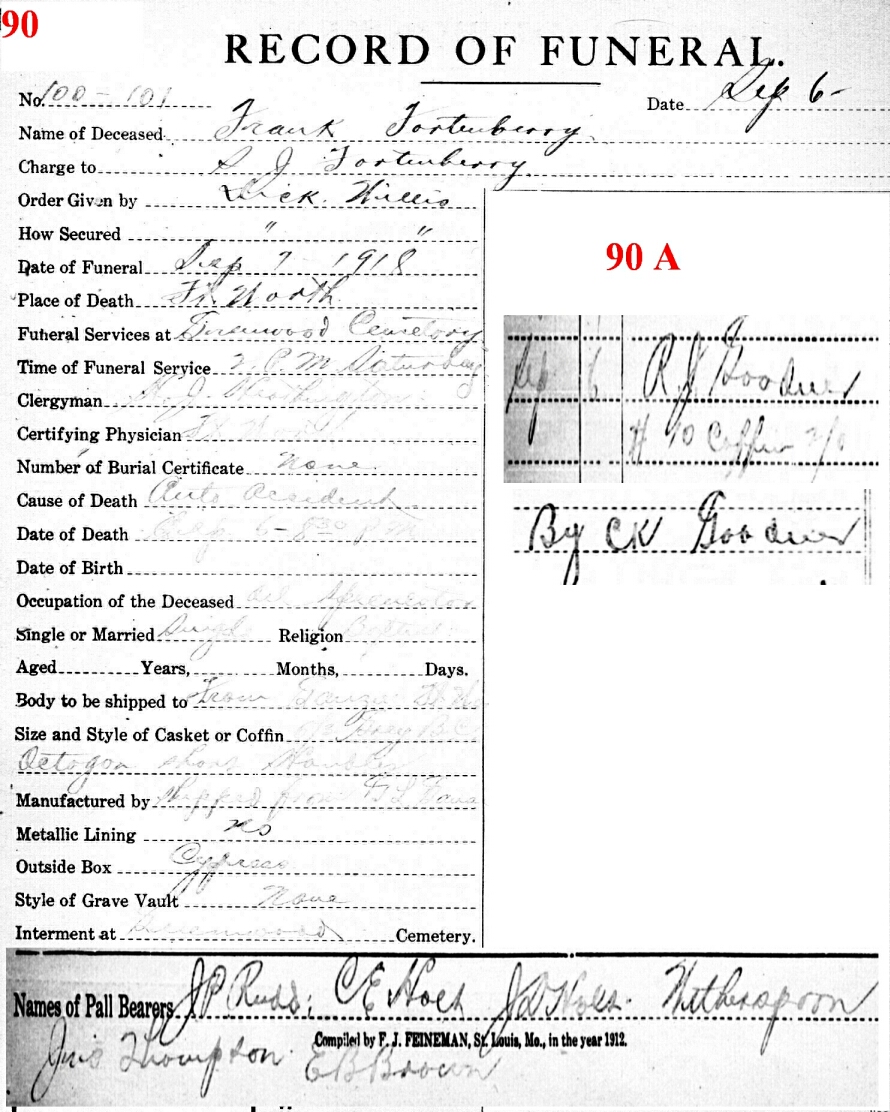 90
RECORD OF FUNERAL.
No. 100-101
Date Sep 6-
Name of Deceased Frank Fortenberry
Charge to S J Fortenberry
Order Given by Dick Willis
How Secured " "
Date of Funeral Sep 7 1918
Place of Death Ft. Worth
Funeral Services at Greenwood Cemetery
Time of Funeral Service 2 P.M Saturday
Clergyman
Certifying Physician Ft Worth
Number of Burial Certificate None
Cause of Death Auto accident
Date of Death Sep 6-8 30 PM
Date of Birth
Occupation of the Deceased oil
Single or Married Single Religion Baptist
Aged Years, Months, Days.
Body to be shipped to From
Size and Style of Casket or Coffin
Octogon short Handles
Manufactured by Shipped from
Metallic Lining no
Outside Box Cypress
Style of Grave Vault None
Interment at Greenwood Cemetery.
90 A
Sep 6 R.J. Goodner
# 10 Coffin
By CK Goodner
Names of Pall Bearers J P Rudd; C E Holt J D Holt. Witherspoon
Compiled by F. J. FEINEMAN, St. Louis, Mo., in the year 1912.
Thompton E B Brown